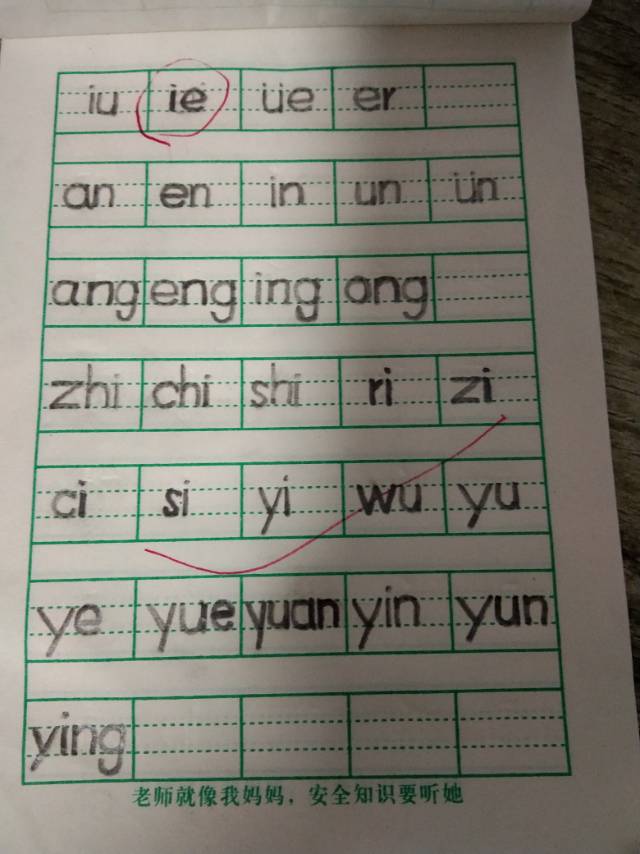 iu ie üe er
an en in un ün
ang eng ing ong
zhi chi shi ri zi
ci si yi wu yu
ye yue yuan yin yun
ying
老师就像我妈妈，安全知识要听她